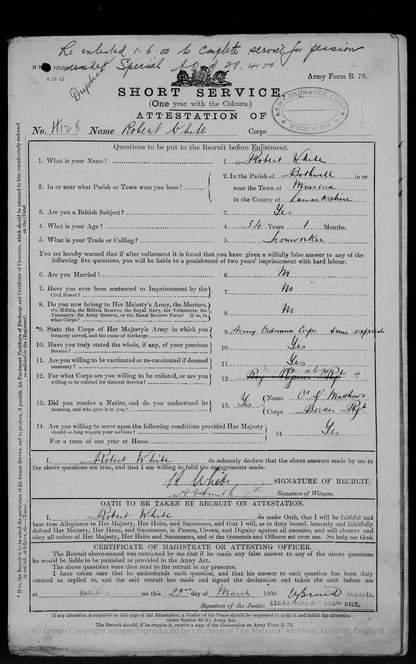 Re enlisted 1-6-00 to complete service for pension
under Special A.O. d/ 28.4.00
Duplicate
Army Form B. 78.
SHORT SERVICE.
(One year with the Colours.)
ATTESTATION OF
ARMY ORDNANCE CORPS
WOOLWICH
No. Name Robert White Corps
Questions to be put to the Recruit before Enlistment.
1. What is your Name? 1. Robert White
2. In or near what Parish or Town were you born? 2. In the Parish of Bothwell in or
near the Town of Mossend
in the County of Lanarkshire
3. Are you a British Subject? 3. Yes
4. What is your Age? 4. 34 Years 1 Months.
5. What is your Trade or Calling? 5. Ironworker
You are hereby warned that if after enlistment it is found that you have given a wilfully false answer to any of the
following five questions, you will be liable to a punishment of two years' imprisonment with hard labour.
6. Are you Married? 6. No
7. Have you ever been Sentenced to Imprisonment by the
Civil Power? 7. No
8. Do you now belong to Her Majesty's Army, the Marines,
the Militia, the Militia Reserve, the Royal Navy, the Volunteers, the
Yeomanry, the Army Reserve, or the Naval Reserve Force? If so, to
what Corps? 8. No
*9. State the Corps of Her Majesty's Army in which you
formerly served, and the cause of discharge. 9. Army Ordnance Corps time expired
10. Have you truly stated the whole, if any, of your previous
Service? 10. Yes
11. Are you willing to be vaccinated or re-vaccinated if deemed
necessary? 11. Yes
12. For what Corps are you willing to be enlisted, or are you
willing to be enlisted for General Service? 12.
13. Did you receive a Notice, and do you understand its
meaning, and who gave it to you? 13. Yes Name Matthews
Corps Border Rgt
14. Are you willing to serve upon the following conditions provided Her Majesty
should so long require your services?
For a term of one year at Home 14. Yes
I, Robert White do solemnly declare that the above answers made by me to
the above questions are true, and that I am willing to fulfil the engagements made.
R White SIGNATURE OF RECRUIT.
Signature of Witness.
OATH TO BE TAKEN BY RECRUIT ON ATTESTATION.
I, Robert White do make Oath, that I will be faithful and
bear true Allegiance to Her Majesty, Her Heirs, and Successors, and that I will, as in duty bound, honestly and faithfully
defend Her Majesty, Her Heirs, and Successors, in Person, Crown, and Dignity against all enemies, and will observe and
obey all orders of Her Majesty, Her Heirs and Successors, and of the Generals and Officers set over me. So help me God.
CERTIFICATE OF MAGISTRATE OR ATTESTING OFFICER.
The Recruit above-named was cautioned by me that if he made any false answer to any of the above questions
he would be liable to be punished as provided in the Army Act.
The above questions were then read to the recruit in my presence.
I have taken care that he understands each question, and that his answer to each question has been duly
entered as replied to, and the said recruit has made and signed the declaration and taken the oath before me
at on this 22nd day of March 1900
Signature of the Justice
If any alteration is required on this page of the Attestation, a Justice of the Peace should be requested to make it and initial the alteration
under Section 80 (6), Army Act.
The Recruit should, if he require it, receive a copy of the Declaration on Army Form B. 78B.
(c) Crown Copyright Images reproduced by courtesy of The National Archives, London, England